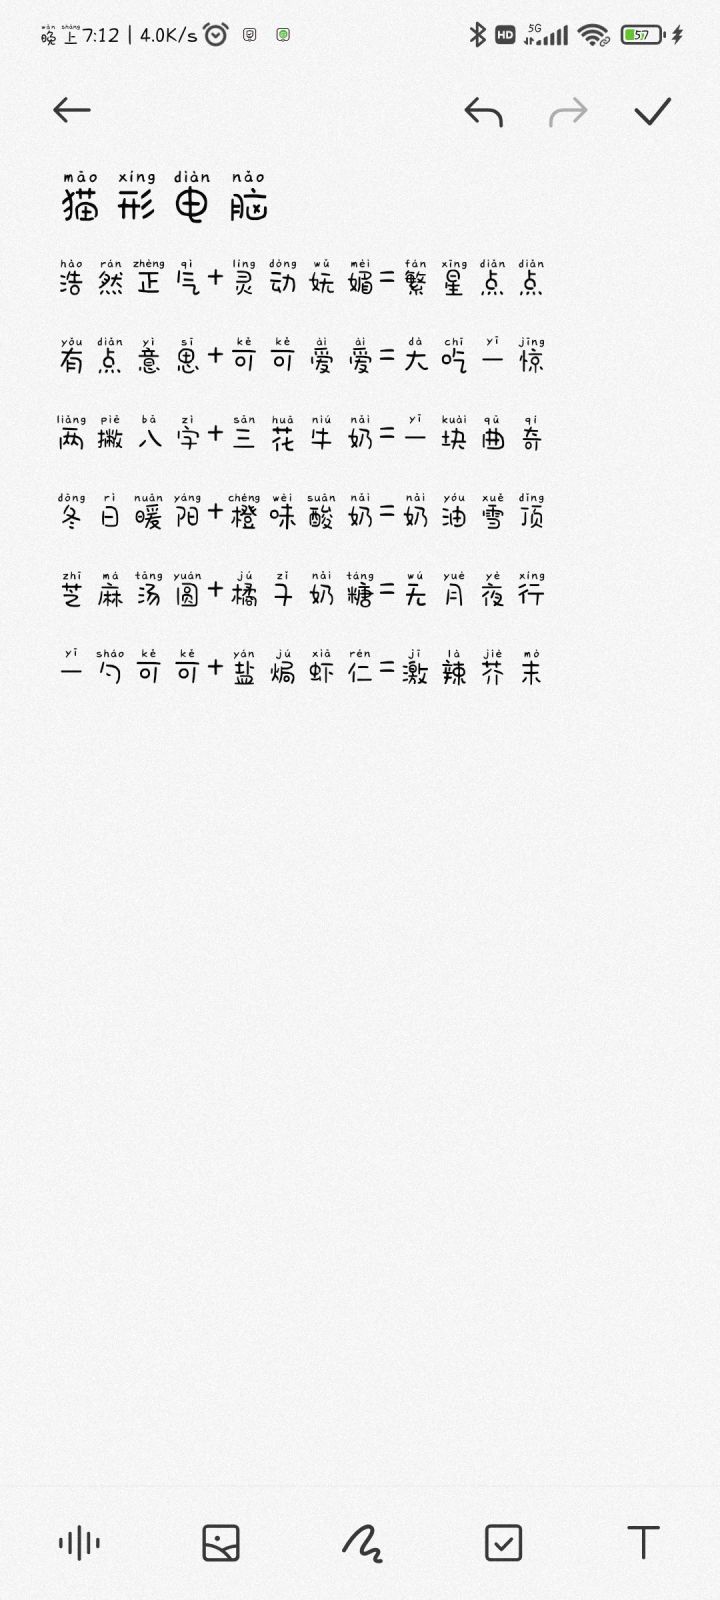 晚上7:12 | 4.0K/s HD 5G 57
māo xíng diàn nǎo
猫形电脑
hào rán zhèng qì líng dòng wǔ mèi fán xīng diǎn diǎn
浩然正气+灵动妩媚=繁星点点
yǒu diǎn yì sī kě kě ài ài dà chī yī jīng
有点意思+可可爱爱=大吃一惊
liǎng piě bā zì sān huā niú nǎi yī kuài qū qí
两撇八字+三花牛奶=一块曲奇
dōng rì nuǎn yáng chéng wèi suān nǎi nǎi yóu xuě dǐng
冬日暖阳+橙味酸奶=奶油雪顶
zhī má tāng yuán jú zǐ nǎi táng wú yuè yè xíng
芝麻汤圆+橘子奶糖=无月夜行
yī sháo kě kě yán jú xiā rén jī là jiè mò
一勺可可+盐焗虾仁=激辣芥末